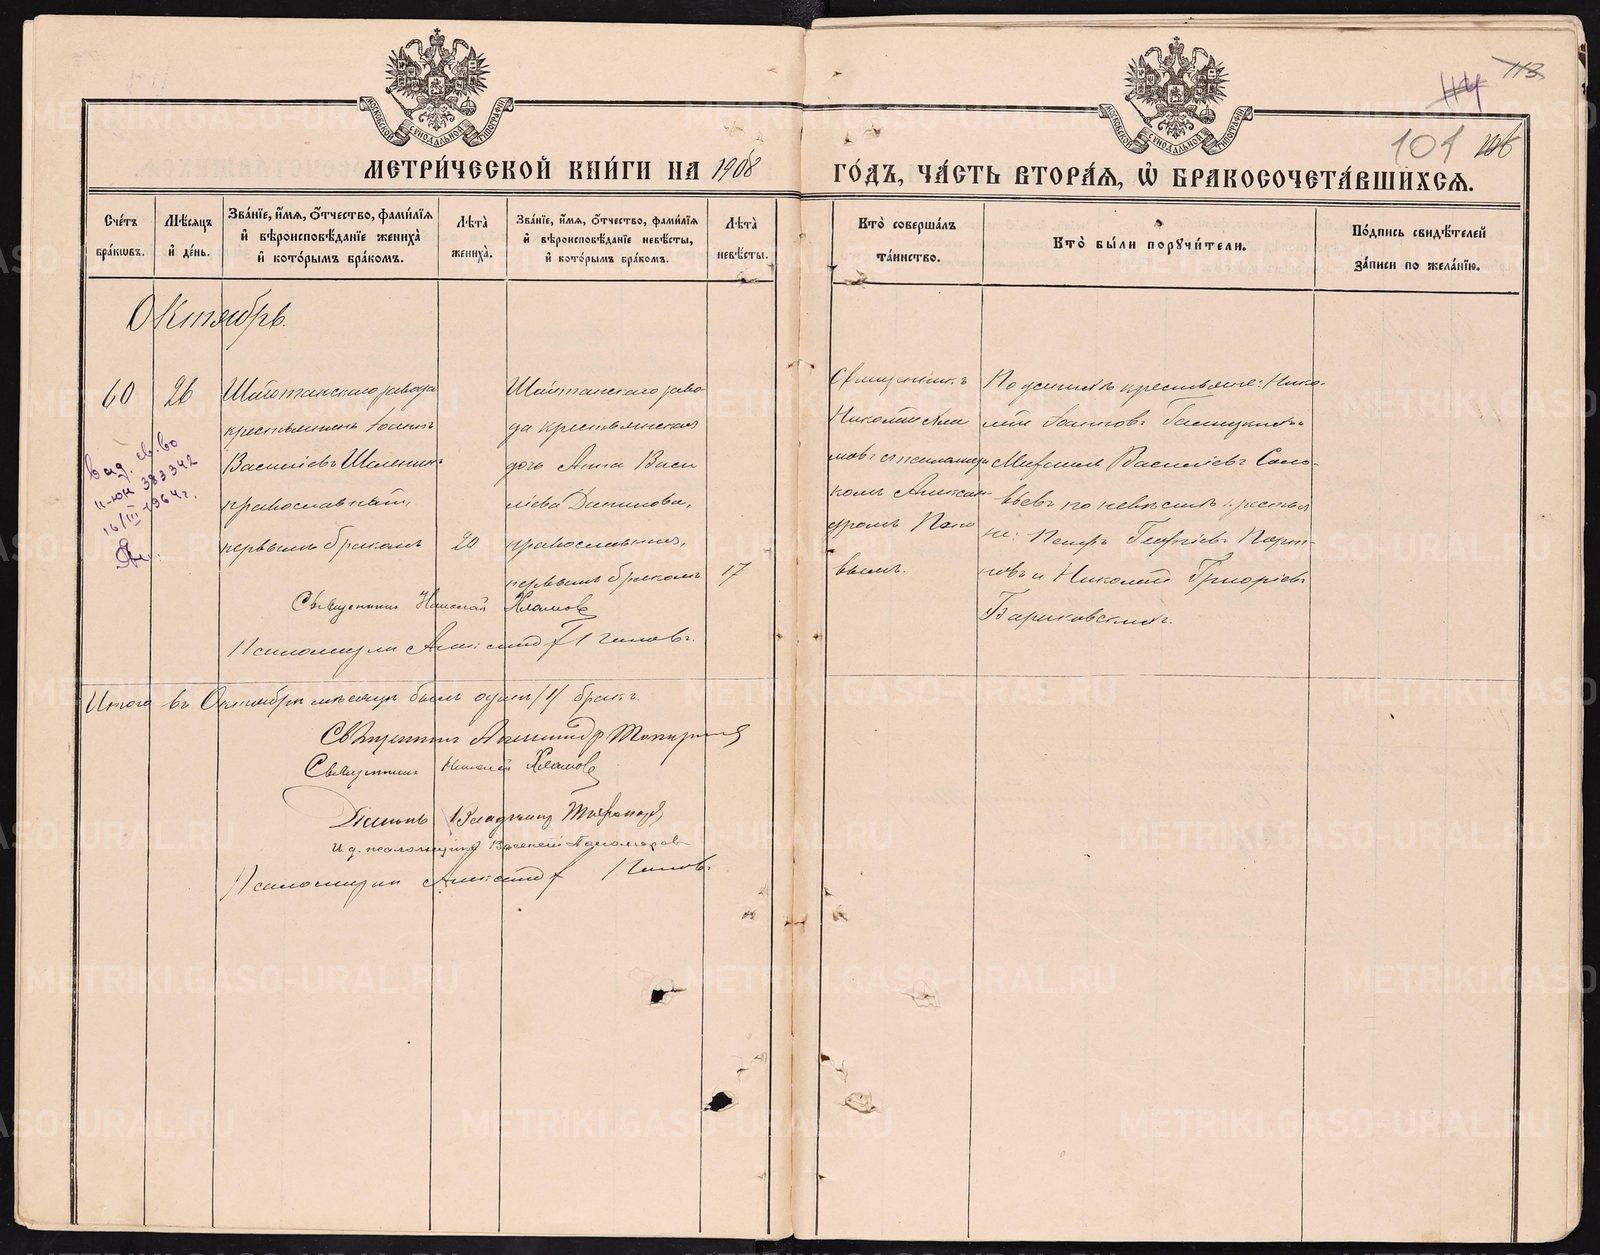 МОСКОВСКОЙ СѴНОДАЛЬНОЙ ТИПОГРАФІИ
МОСКОВСКОЙ СѴНОДАЛЬНОЙ ТИПОГРАФІИ
114 113
101 106
МЕТРИ́ЧЕСКОЙ КНИ́ГИ НА 1908
ГО́ДЪ, ЧА́СТЬ ВТОРА́Я, Ѡ҆ БРАКОСОЧЕТА́ВШИХСЯ.
Сче́тъ бра́кѡвъ.
Мѣ́сяцъ и҆ де́нь.
Зва́нїе, и҆́мя, ѻ҆́тчество, фами́лїя и҆ вѣроисповѣ́данїе жениха̀ и҆ кото́рымъ бра́комъ.
Лѣ́та жениха̀.
Зва́нїе, и҆́мя, ѻ҆́тчество, фами́лїя и҆ вѣроисповѣ́данїе невѣ́сты, и҆ кото́рымъ бра́комъ.
Лѣ́та невѣ́сты.
Кто̀ соверша́лъ та́инство.
Кто̀ бы́ли поручи́тели.
По́дпись свидѣ́телей за́писи по жела́нїю.
Октябрь.
60
26
Шайтанскаго завода
крестьянинъ Іоаннъ
Васильевъ
православный,
первымъ бракомъ
20
Шайтанскаго заво
да крестьянская
дочь Анна Васи
ліева Данилова,
православная,
первымъ бракомъ
17
Священникъ
Николай Хла
мовъ съ псаломщи
комъ Алексан
дромъ Попо
вымъ.
По женихѣ крестьяне: Нико
лай Іоанновъ
Михаилъ Васильевъ Соло
вьевъ по невѣстѣ крестья
не: Петръ Георгіевъ
и Николай Григорьевъ
выд. св-во
II-ЮН 383342
16/III-1964 г.
Священникъ Николай Хламовъ
Псаломщикъ Александръ Поповъ.
Итого въ Октябрѣ мѣсяцѣ былъ одинъ /1/ бракъ.
Священникъ Александръ
Священникъ Николай Хламовъ
Діаконъ Владиміръ
И. д. псаломщика Василій Пономаревъ
Псаломщикъ Александръ Поповъ.
METRIKI.GASO-URAL.RU